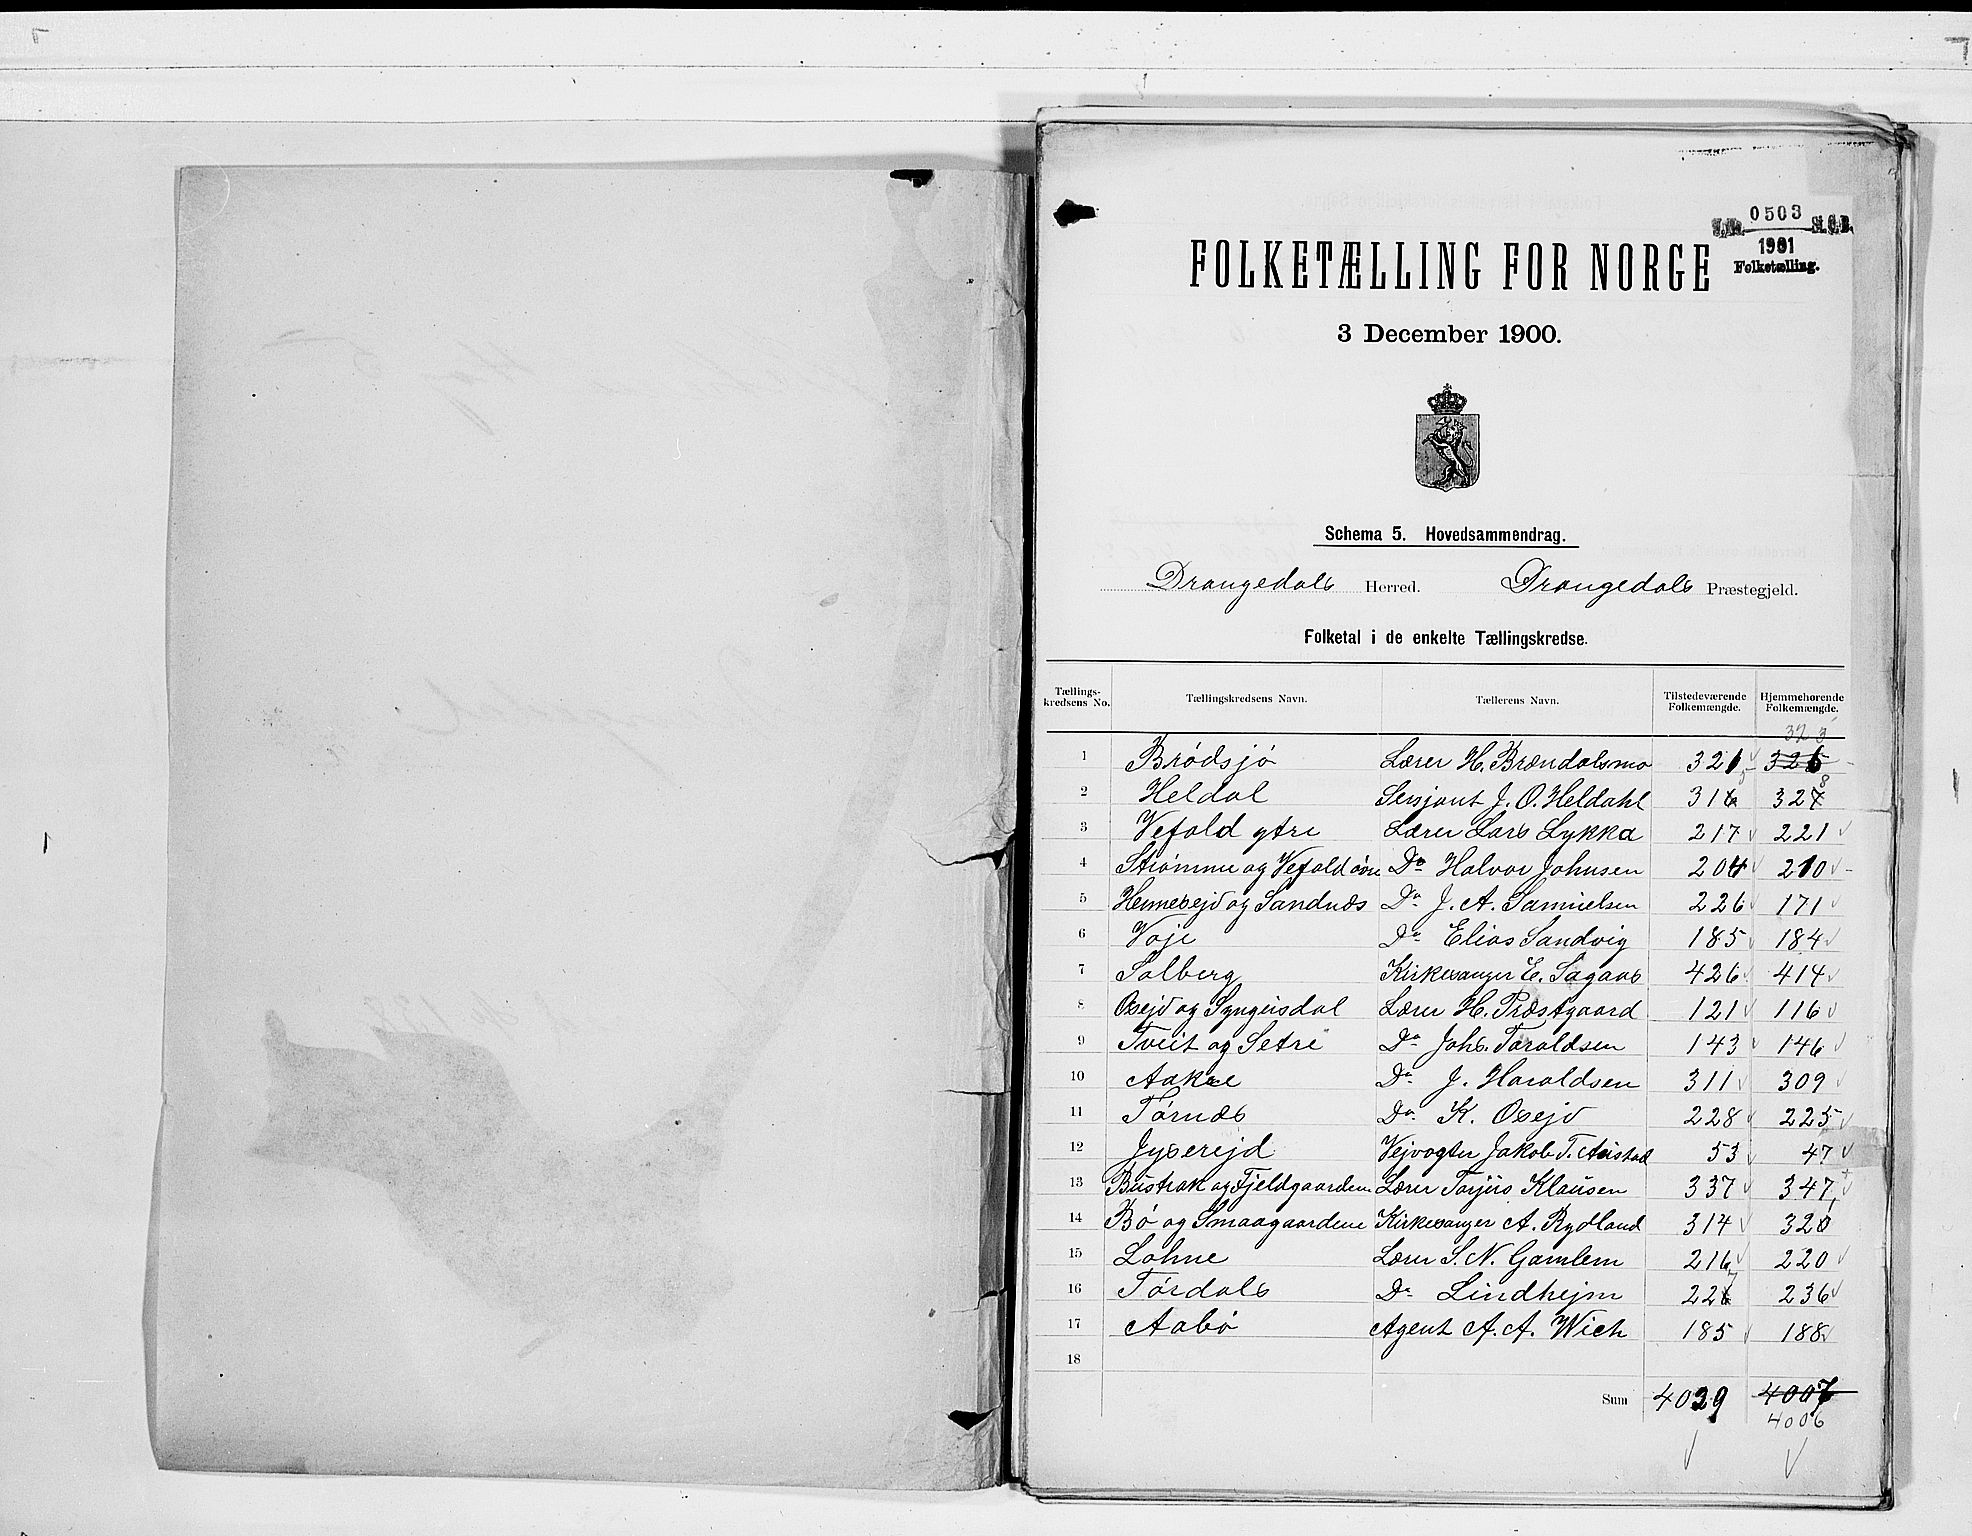 0503
1901
Folketælling.
FOLKETÆLLING FOR NORGE
3 December 1900.
Schema 5. Hovedsammendrag.
Drangedals Herred. Drangedals Præstegjeld.
Folketal i de enkelte Tællingskredse.
Tællings-kredsens No. Tællingskredsens Navn. Tællerens Navn. Tilstedeværende Folkemængde. Hjemmehørende Folkemængde.
323
1 Brødsjø Lærer H. Brændalsmo 321 326
2 Heldal Sersjant J. O. Heldahl 316 328
3 Vefald ytre Lærer Lars Lykka 217 221
4 Strømme og Vefald øvre Do Halvor Johnsen 204 210
5 Henneseid og Sandnæs Do J. A. Samuelsen 226 171
6 Voje Do Elias Sandvig 185 184
7 Solberg Kirkesanger E. Sagaas 426 414
8 Oseid og Syngeisdal Lærer H. Præstgaard 121 116
9 Tveit og Sætre Do Johs. Taraldsen 143 146
10 Aakre Do J. Haraldsen 311 309
11 Tørnæs Do K. Oseid 228 225
12 Jyserejd Vejvogter Jakob T. Austad 53 47
13 Bustrak og Fjeldgaardene Lærer Tarjus Klausen 337 347
14 Bø og Smaagaardene Kirkesanger A. Rydland 314 321
15 Lohne Lærer S. N. Gamlem 216 220
16 Tørdals Do Lindhejm 227 236
17 Aabø Agent A. A. Wich 185 188
18
Sum 4029 4007
4006